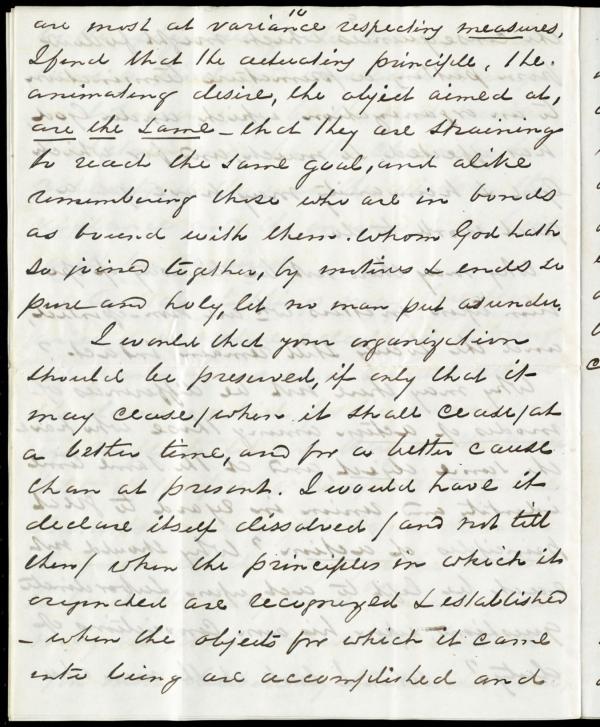 10
are most at variance respecting measures,
I find that the actuating principle, the
animating desire, the object aimed at,
are the same – that they are straining
to reach the same goal, and alike
remembering those who are in bonds
as bound with them. Whom God hath
so joined together, by motives & ends so
pure and holy, let no man put asunder.
I would that your organization
should be preserved, if only that it
may cease / when it shall cease / at
a better time, and for a better cause
than at present. I would have it
declare itself dissolved / and not till
then / when the principles in which it
are recognized & established
– when the objects for which it came
into being are accomplished and